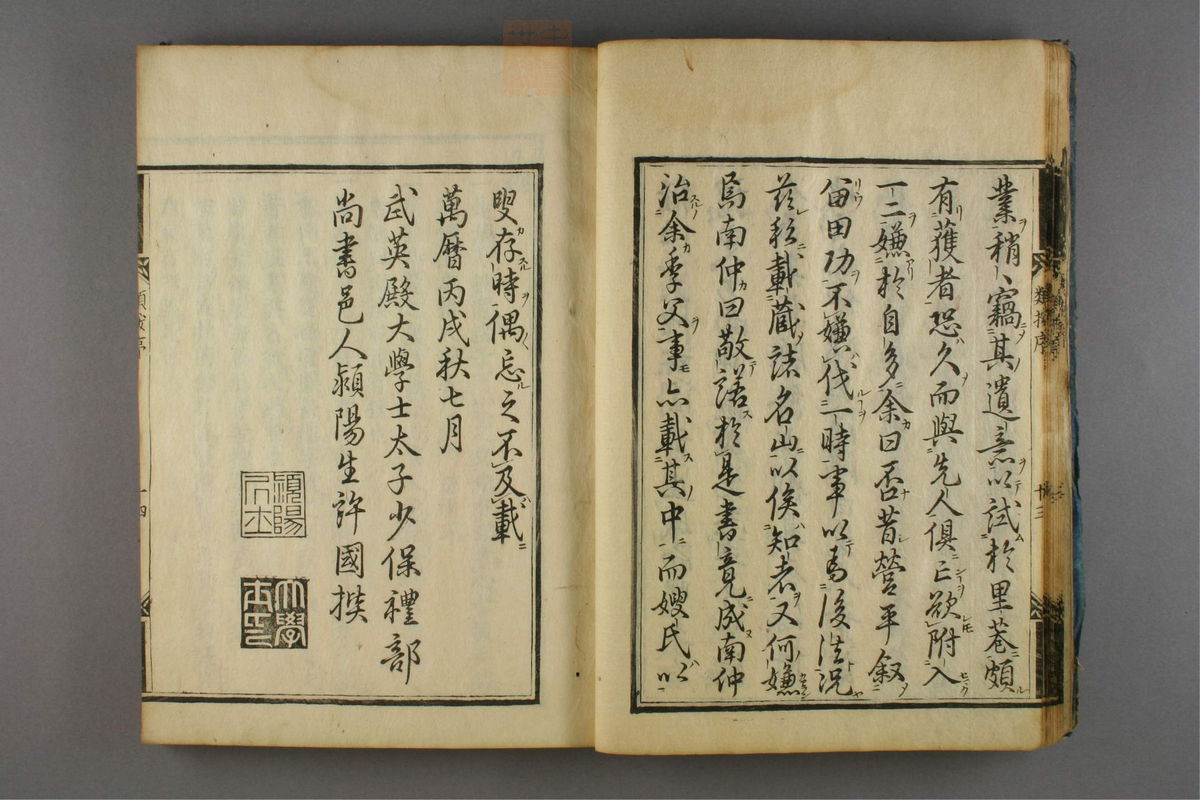 類按序 十三
業稍〻竊其遺意以試於里巷頗
有獲者恐久而與先人俱亡欲附入
一二嫌於自多余曰否昔營平叙
留田功不嫌伐一時事以爲後法況
茲載藏諸名山以俟知者又何嫌
焉南仲曰敬諾於是書竟成南仲
治余季父事亦載其中而嫂氏以
叟存時偶忘之不及載
萬曆丙戌秋七月
武英殿大學士太子少保禮部
尚書邑人潁陽生許國撰
潁陽居士
十四